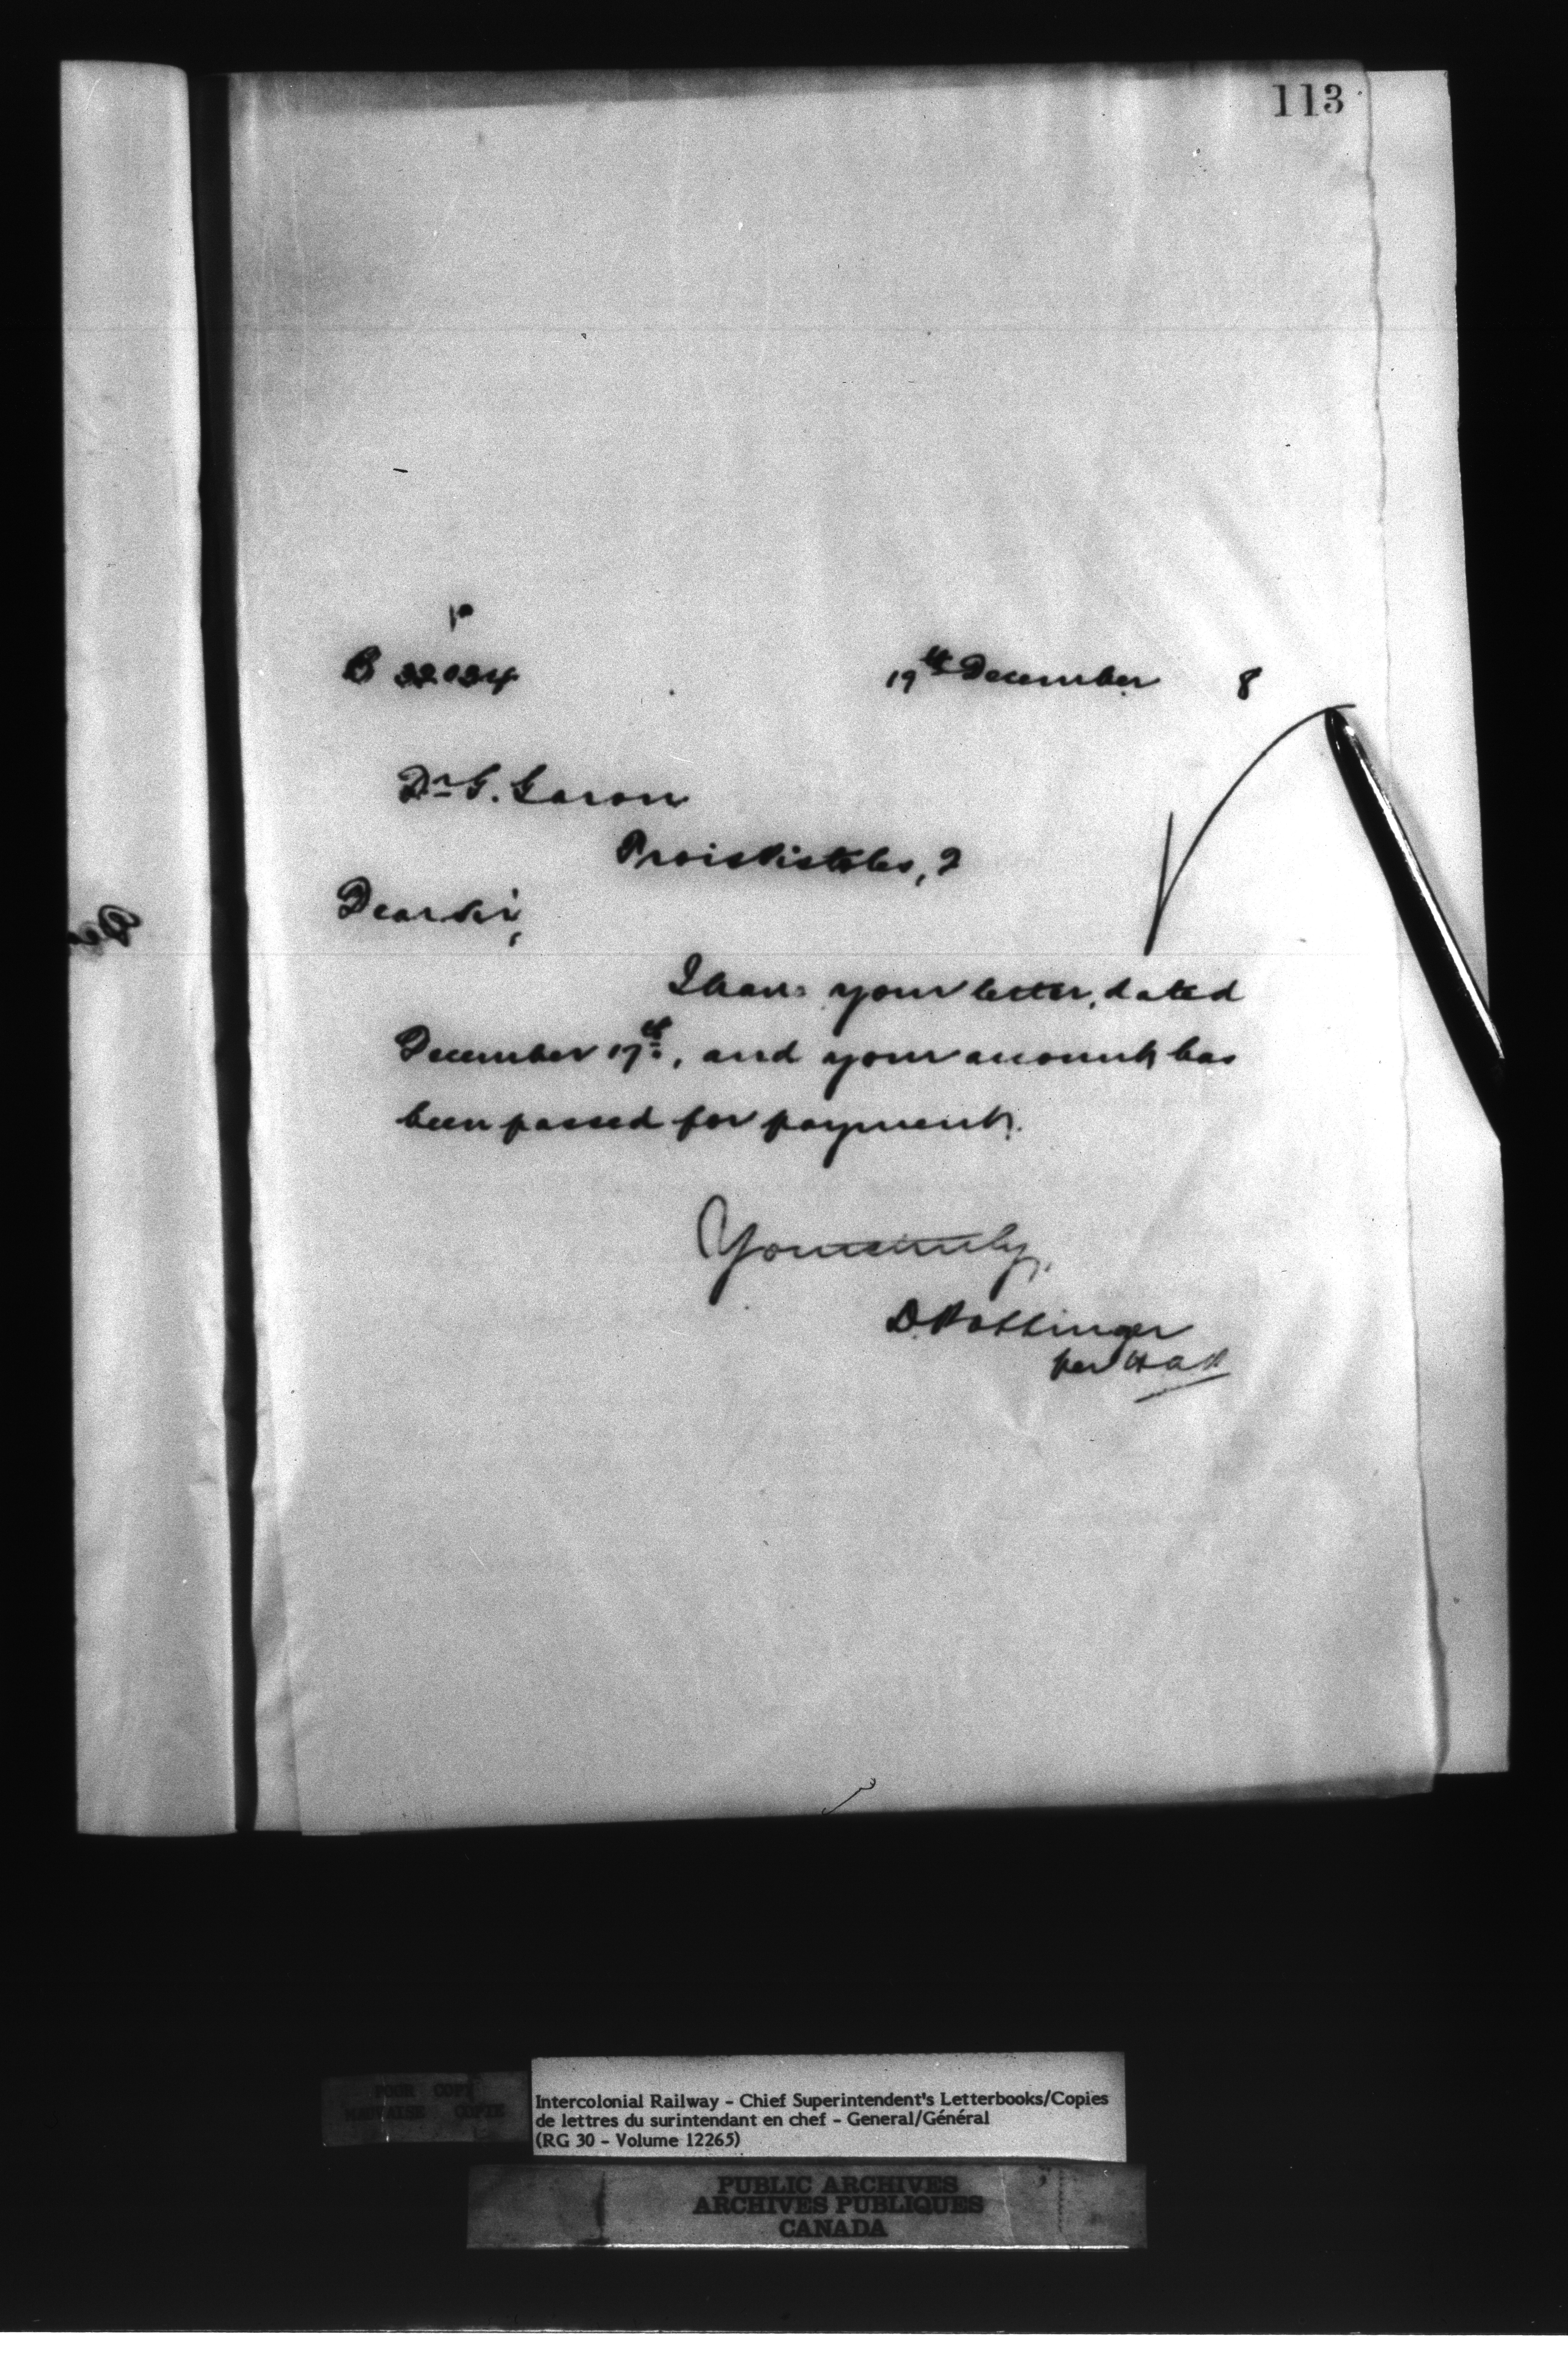 113
B 22034
19th December 8
Dr G. Garon
Trois Pistoles, Q
Dear Sir,
I have your letter, dated
December 17th, and your account has
been passed for payment.
Yours truly,
D. Pottinger
per
POUR COPY
MAUVAISE COPIE
Intercolonial Railway - Chief Superintendent's Letterbooks/Copies
de lettres du surintendant en chef - General/Général
(RG 30 - Volume 12265)
PUBLIC ARCHIVES
ARCHIVES PUBLIQUES
CANADA